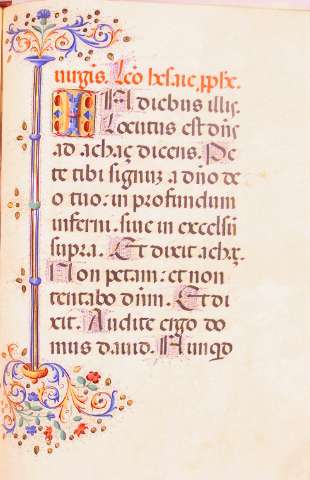 uirgis. Lc̄o hesaie. pphe.
IN diebus illis.
Locutus est dn̄s
ad achaz dicens. Pe
te tibi signuz a dn̄o de
o tuo: in profundum
inferni. siue in excelsū
supra. Et dixit achz.
Non petam: et non
tentabo dn̄m. Et di
xit. Audite ergo do
mus dauid. Nunqd